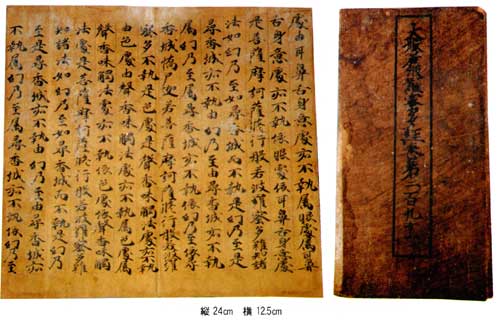 大般若波羅蜜多經卷第
處由耳鼻舌身意處亦不執屬眼處屬耳鼻
舌身意處亦不執依眼處依耳鼻舌身意處
是菩薩摩訶薩修行般若波羅蜜多觀諸
法如幻乃至如尋香城而不執是幻乃至是
尋香城亦不執由幻乃至由尋香城亦不執
屬幻乃至屬尋香城亦不執依幻乃至依尋
香城憍尸迦若菩薩摩訶薩修行般若波羅
蜜多不執是色處是聲香味觸法處亦不執
由色處由聲香味觸法處亦不執屬色處屬
聲香味觸法處亦不執依色處依聲香味觸
法處是菩薩摩訶薩修行般若波羅蜜多觀
諸法如幻乃至如尋香城而不執是幻乃
至是尋香城亦不執由幻乃至由尋香城亦
不執屬幻乃至屬尋香城亦不執依幻乃至
縦 24cm 横 12.5cm